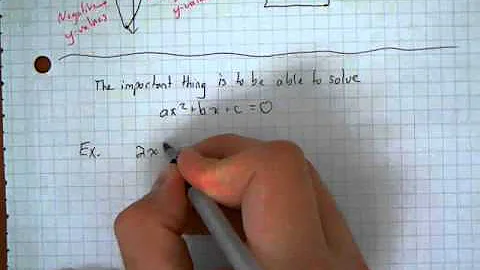 Negative
y-values
The important thing is to be able to solve
ax²+bx+c=0
Ex. 2x